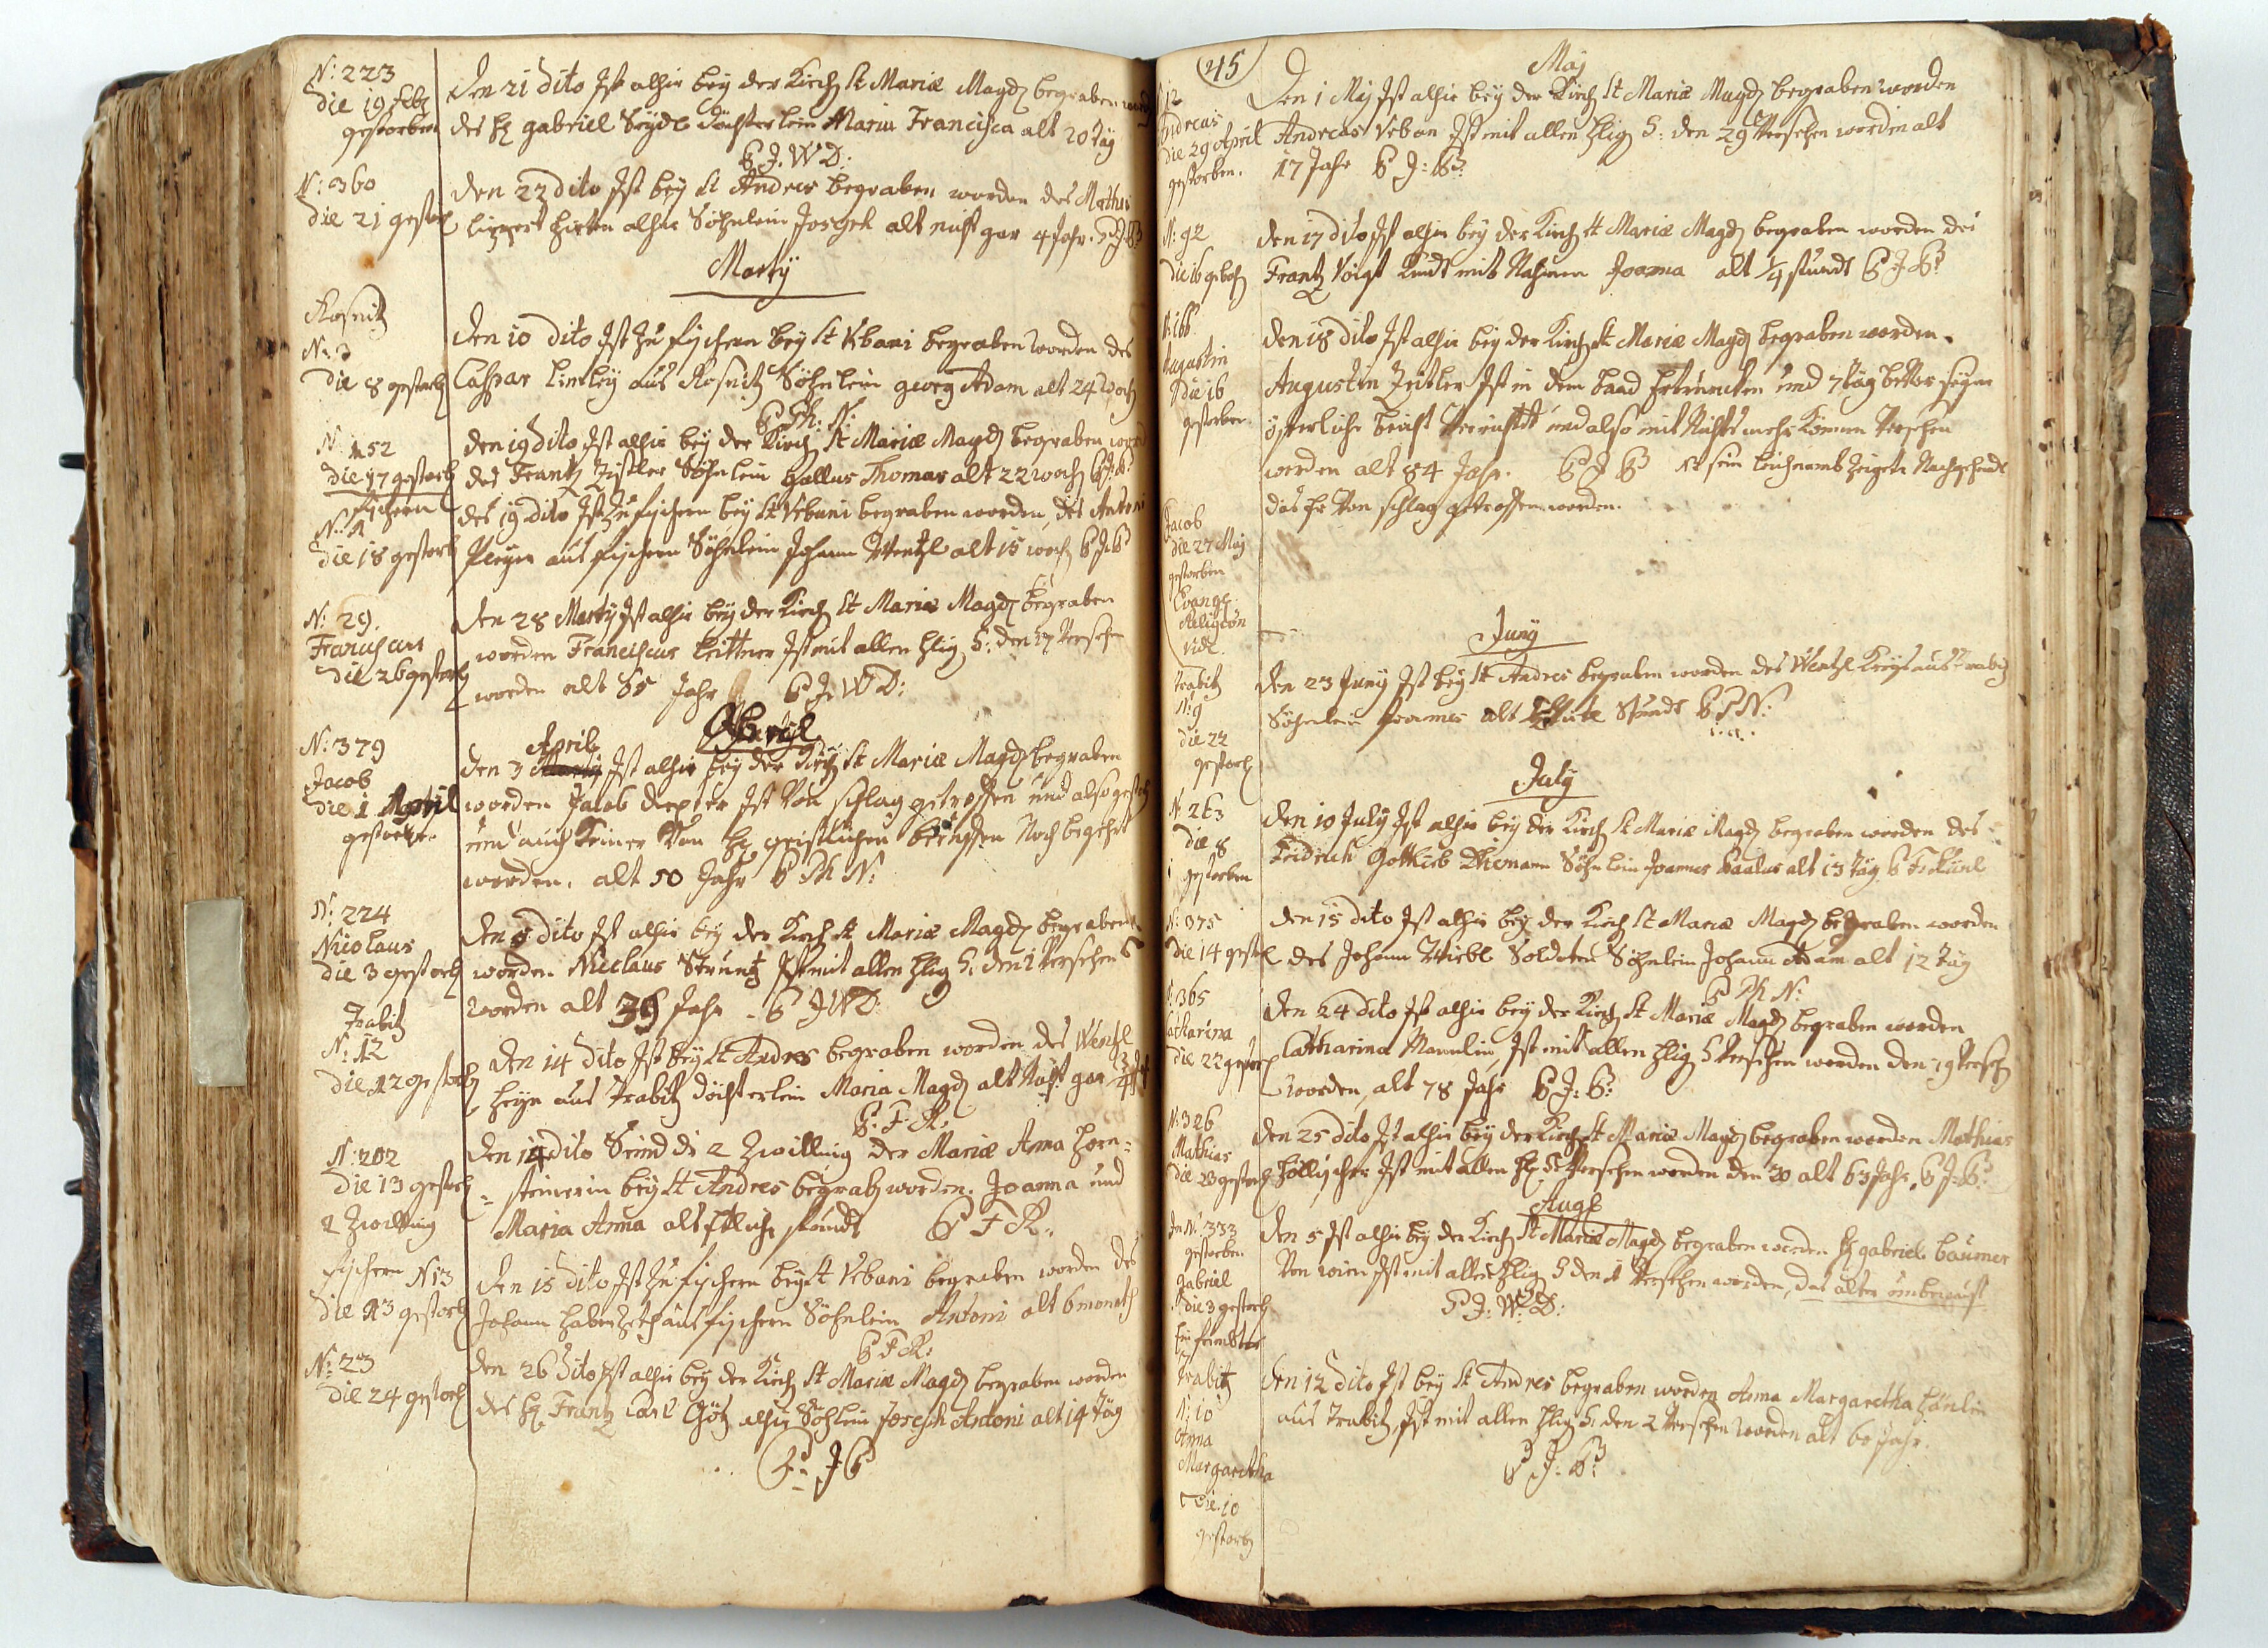 N: 223
die 19 Feb:
gestorben
Den 21 dito Ist alhir beÿ der Kirch St Mariæ Magd: begraben word
des H: gabriel Seÿdl döchterlein Maria Francisca alt 20 täg
P J. W D:
N: 360
die 21 gestorb
Den 22 dito Ist beÿ St Andres begraben worden des Mathes
hirten alhir Söhnlein Joseph alt nicht gar 4 Jahr. P J P
Martÿ
Rosnitz
N: 3
die 8 gestorb
Den 10 dito Ist zu fischern beÿ St Vrbani begraben worden des
Caspar aus Rosnitz Söhnlein georg Adam alt 24 woch
P Ph: N:
N: 152
die 17 gestorb
Den 19 dito Ist alhir beÿ der Kirch St Mariæ Magd: begraben word
des Frantz Zistler Söhnlein Gallus Thomas alt 22 woch P J P
fischern
N: 4
die 18 gestorb
des 19 dito Ist zu fischern beÿ St Vrbani begraben worden, des Antoni
Pleÿer aus fischern Söhnlein Johann Wentzl alt 15 woch P J P
N: 29.
Franciscus
die 26 gestorb
Den 28 Martÿ Ist alhir beÿ der Kirch St Mariæ Magd: begraben
worden Franciscus Leittner Ist mit allen hlig: S: den 17 Versehen
worden alt 85 Jahr P J. W D:
Aprill
N: 379
Jacob
die 1 April
gestorben.
April
Den 3 Martÿ Ist alhir beÿ der Kirch St Mariæ Magd: begraben
worden Jacob Ist Von schlag getroffen und also gestorb
und auch keiner Von H: geistlichen beruffen Noch begehrt
worden. alt 50 Jahr P Ph N:
N: 224
Nicolaus
die 3 gestorb
Den 5 dito Ist alhir beÿ der Kirch St Mariæ Magd: begraben
worden Niclaus Strunz Ist mit allen hlig S: den 1 Versehen
worden alt 39 Jahr P J W D:
Trabitz
N: 12
die 12 gestorb
Den 14 dito Ist beÿ St Andres begraben worden des Wentzl
Heÿn aus Trabitz döchterlein Maria Magd: alt nicht gar
P: F: R:
N: 202
die 13 gestorb
2 Zwilling
Den 14 dito Seind die 2 Zwilling der Mariæ Anna Horn=
=steinerin beÿ St Andres begrab worden. Joanna und
Maria Anna alt etliche stundt P F R:
fischern N 13
die 13 gestorb
Den 15 dito Ist zu fischern beÿ St Vrbani begraben worden des
Johann aus fischern Söhnlein Antoni alt 6 monath
P F R:
N: 23
die 24 gestorb
Den 26 dito Ist alhir beÿ der Kirch St Mariæ Magd: begraben worden
des H: Frantz Carl Götz alhir Söhlein Joseph Antoni alt 14 täg
P: J P
45
Maÿ
N 12
Andreas
die 29 April
gestorben.
Den 1 Maÿ Ist alhir beÿ der Kirch St Mariæ Magd: begraben worden
Andreas Vrban Ist mit allen hlig S: den 29 Versehen worden alt
17 Jahr P J: P:
N: 92
die 16
Den 17 dito Ist alhir beÿ der Kirch St Mariæ Magd: begraben worden des
Frantz Voigt Kindt mit Nahmen Joanna alt 1/4 stundt P J P:
N: 166
Augustin
die 16
gestorben.
Den 18 dito Ist alhir beÿ der Kirch St Mariæ Magd: begraben worden.
Augustin Zeitler Ist in dem baad Ertruncken und 7 täg bevor seÿne
österliche beicht Verricht und also mit Nichts mehr können Versehen
werden alt 84 Jahr. P J P sein leichnamb zeigete Nachgehendt
das Er Von schlag getroffen worden.
Jacob
die 27 Maÿ
gestorben
Evangl.
Religion
vide
Junÿ
Trabitz
N: 9
die 22
gestorb
Den 23 Junÿ Ist beÿ St Andres begraben worden des Wentzl aus Trabitz
Söhnlein Joannes alt Etliche Stundt P P N:
Julÿ
N 263
die 8
gestorben
Den 10 Julÿ Ist alhir beÿ der Kirch St Mariæ Magd: begraben worden des
Fridrich Gottlieb Söhnlein Joannes Paulus alt 13 täg P
N: 375
die 14 gestorb
Den 15 dito Ist alhir beÿ der Kirch St Mariæ Magd: begraben worden
des Johann Soldaten Söhnlein Johann Adam alt 12 täg
P Ph N:
N: 365
Catharina
die 22 gestorb
Den 24 dito Ist alhir beÿ der Kirch St Mariæ Magd: begraben worden
Catharina Mannlin Ist mit allen hlig S Versehen worden den 19 Verseh
worden, alt 78 Jahr P J: P:
N: 326
Mathias
die 23 gestorb
Den 25 dito Ist alhir beÿ der Kirch St Mariæ Magd: begraben worden Mathias
Höllischer Ist mit allen H: S: Versehen worden den 20 alt 63 Jahr, P J: P:
Aug:
In N: 333
gestorben.
gabriel
die 3 gestorb
Ein frembter
Den 5 Ist alhir beÿ der Kirch St Mariæ Magd: begraben worden H: gabriel baumer
Von wien Ist mit allen hlig S den 1 Versehen worden, das alter unbewust
P J: W: D:
Trabitz
N: 10
Anna
Margaretha
die 10
gestorb
Den 12 dito Ist beÿ St Andres begraben worden Anna Margaretha
aus Trabitz, Ist mit allen hlig S: den 2 Versehen worden alt 60 Jahr.
P J: P: